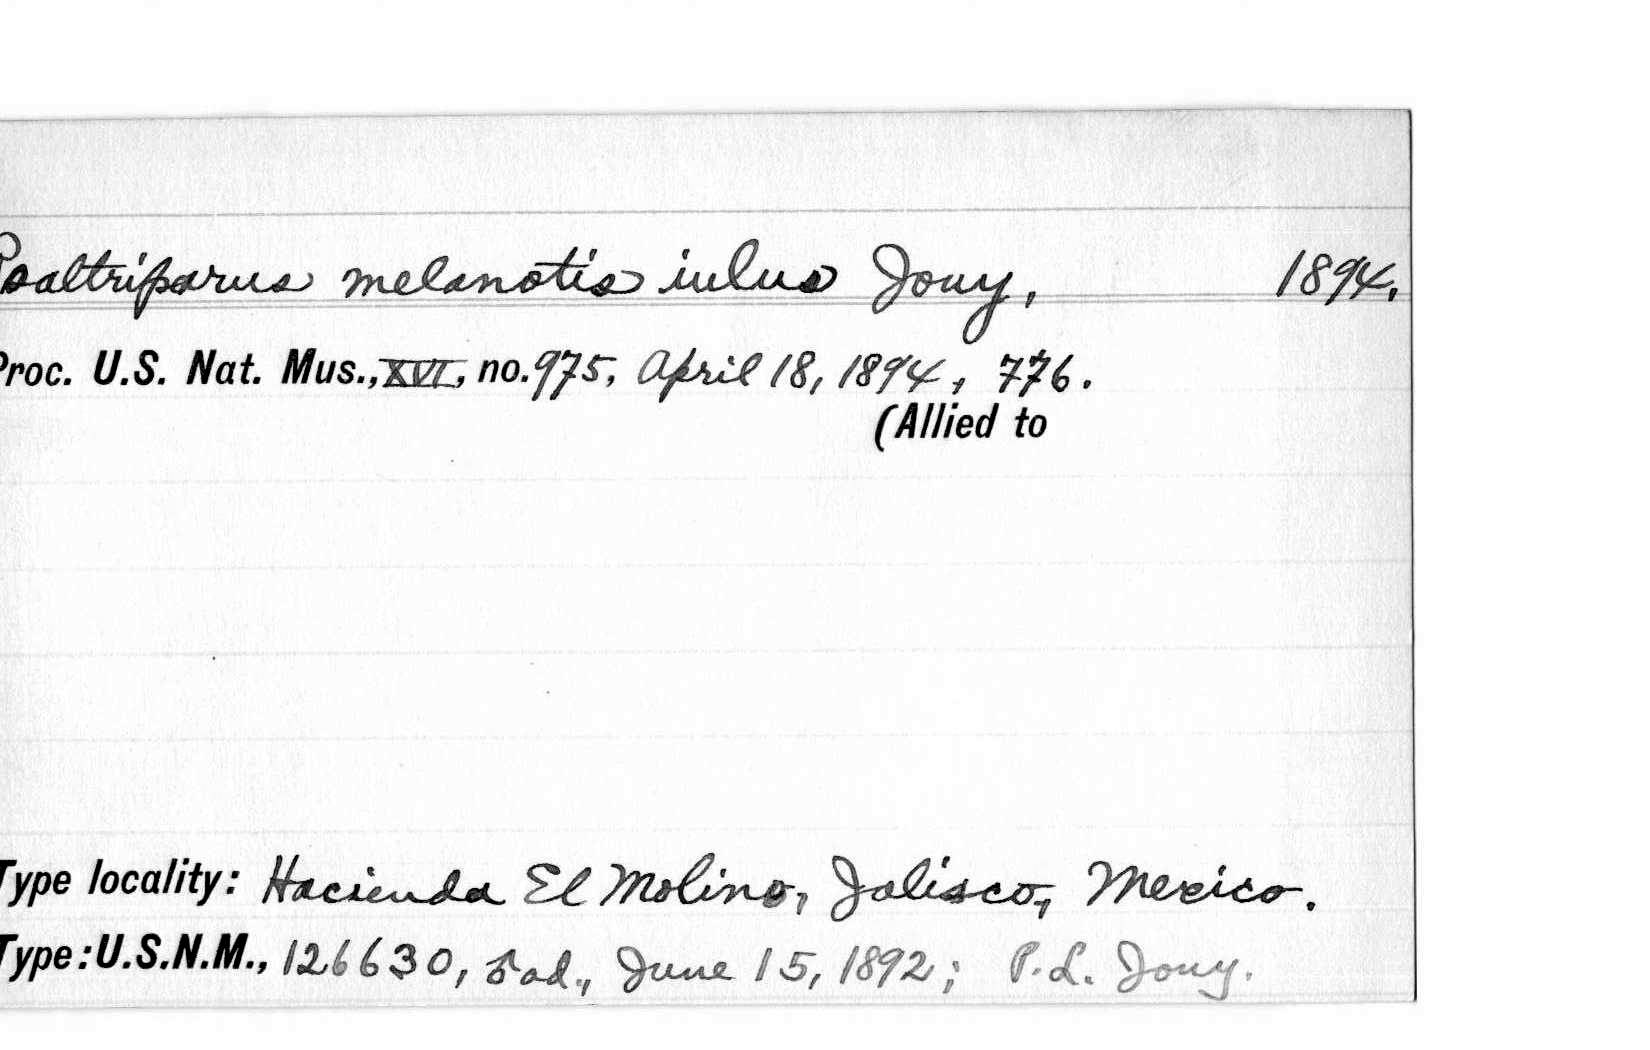 Psaltriparus melanotis iulus Jouy, 1894.
Proc. U.S. Nat. Mus., XVI, no. 975, April 18, 1894, 776.
(Allied to
Type locality: Hacienda El Molino, Jalisco, Mexico.
Type: U.S.N.M., 126630, ad., June 15, 1892; P.L. Jouy.